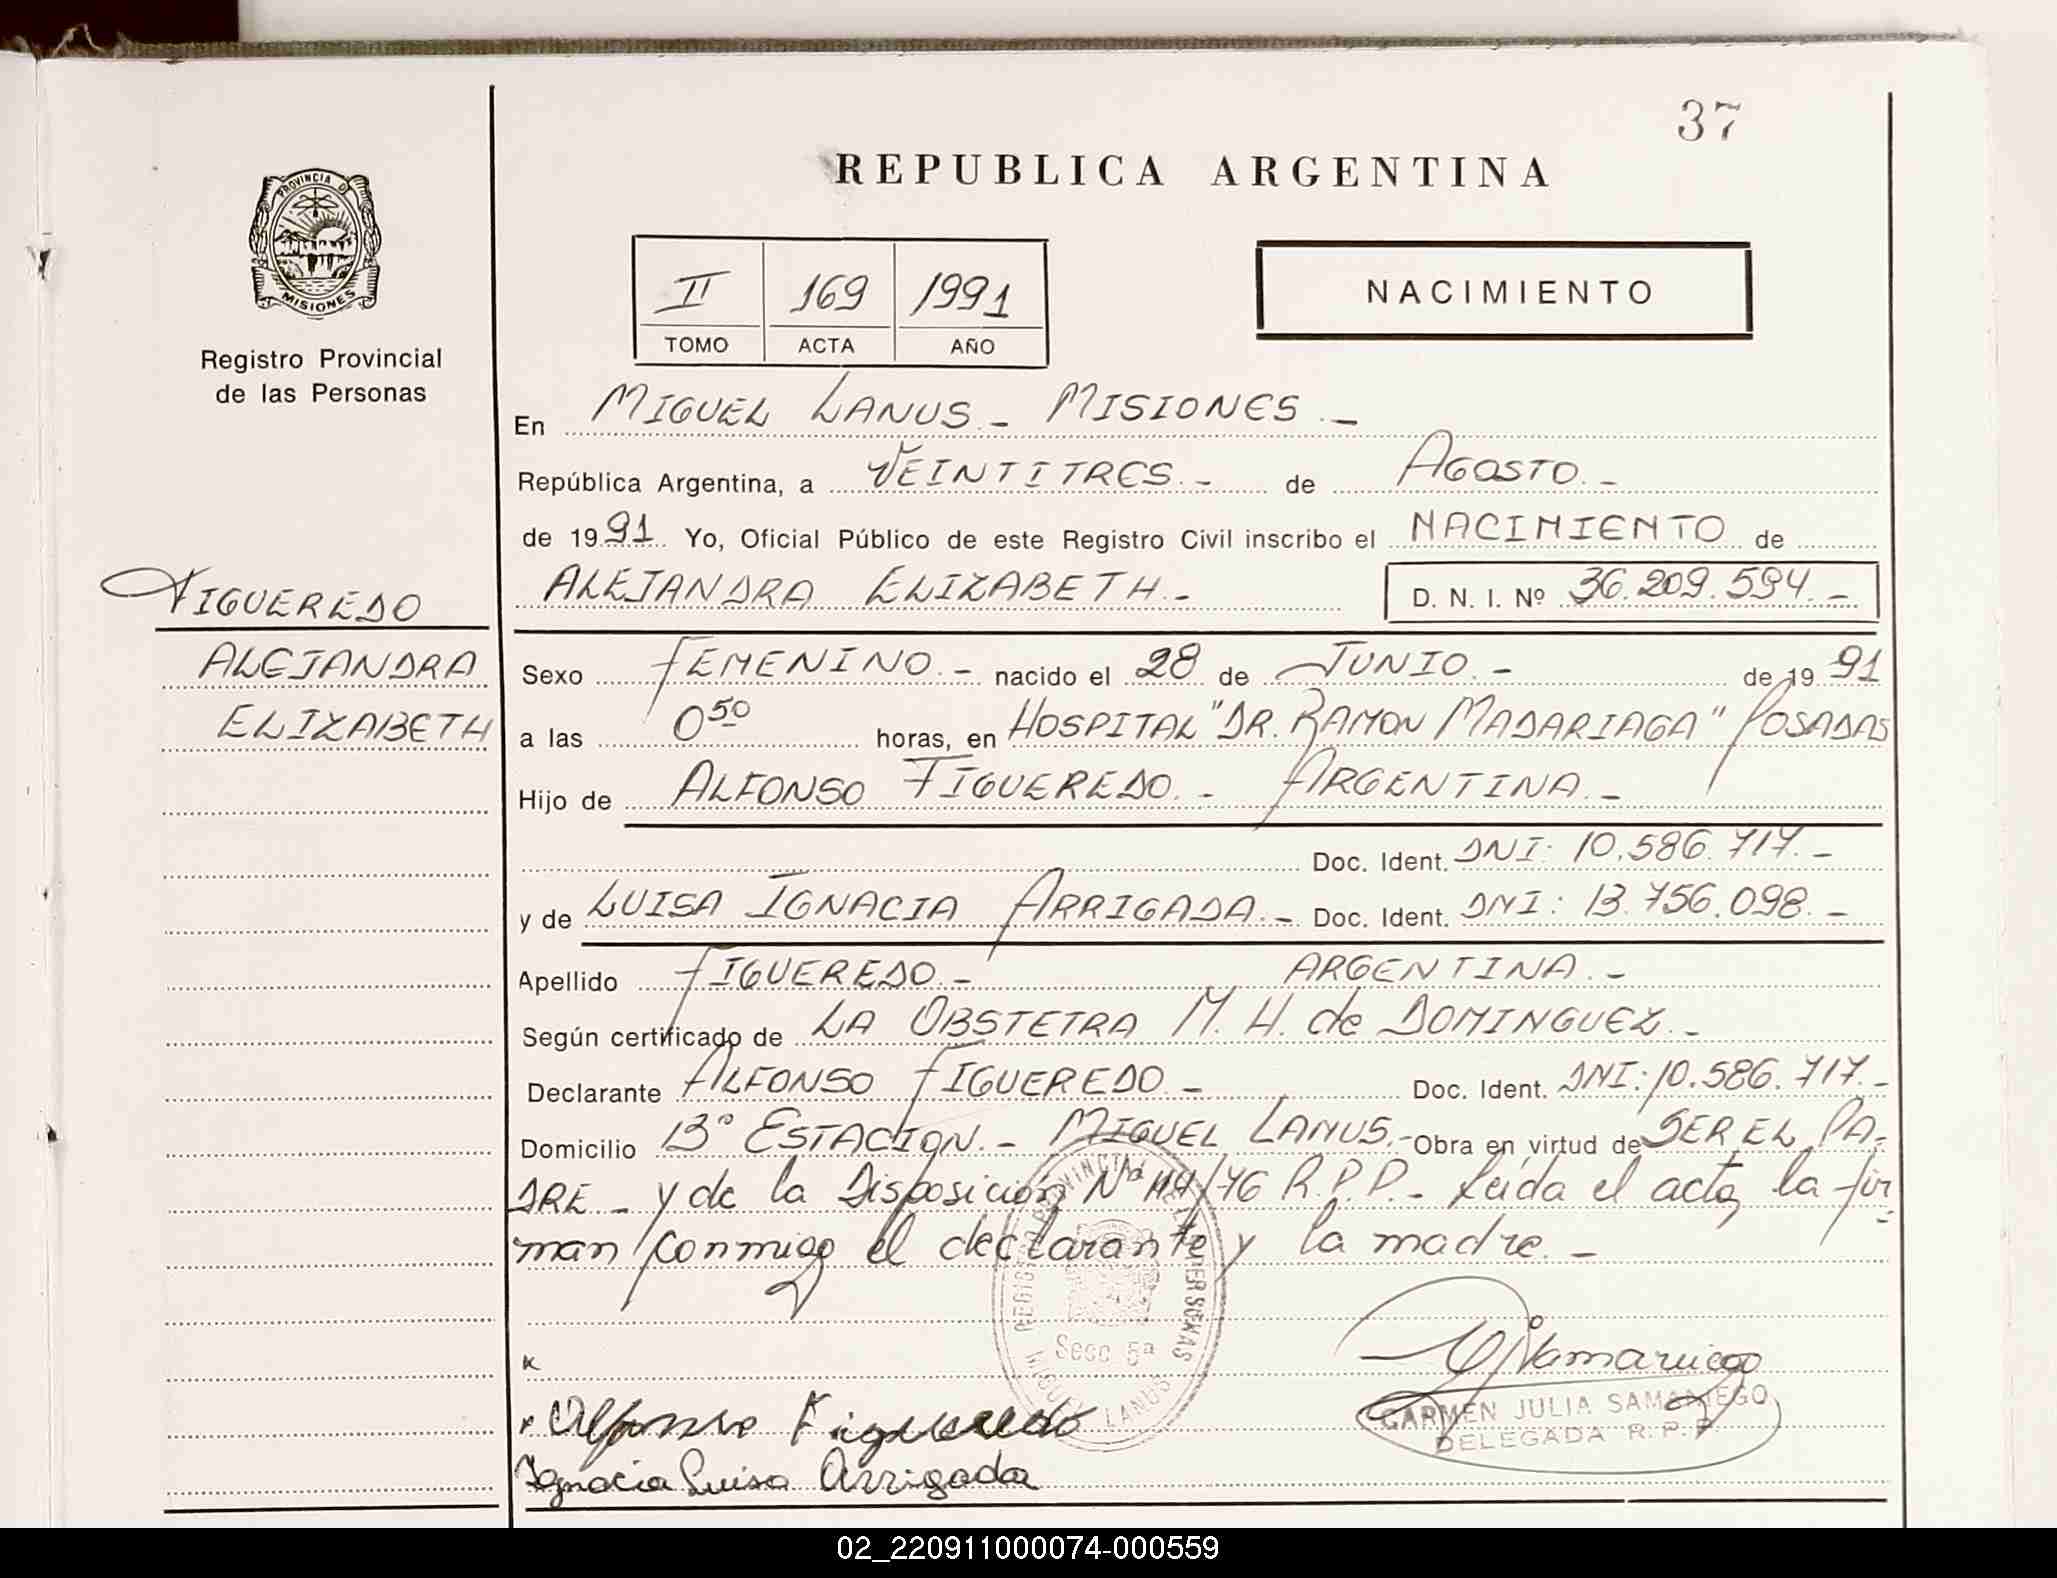 37
REPUBLICA ARGENTINA
PROVINCIA DE
MISIONES
Registro Provincial
de las Personas
II 169 1991
TOMO ACTA AÑO
NACIMIENTO
En MIGUEL LANUS.- MISIONES.-
República Argentina, a VEINTITRES.- de AGOSTO.-
de 1991 Yo, Oficial Público de este Registro Civil inscribo el NACIMIENTO de
ALEJANDRA ELIZABETH.- D. N. I. Nº 36.209.594.-
FIGUEREDO
ALEJANDRA
ELIZABETH
Sexo FEMENINO.- nacido el 28 de JUNIO.- de 1991
a las 0 50 horas, en HOSPITAL "DR. RAMON MADARIAGA" POSADAS
Hijo de ALFONSO FIGUEREDO.- ARGENTINA.-
Doc. Ident. DNI: 10.586.717.-
y de LUISA IGNACIA ARRIGADA.- Doc. Ident. DNI: 13.756.098.-
Apellido FIGUEREDO.- ARGENTINA.-
Según certificado de LA OBSTETRA M. H. de DOMINGUEZ.-
Declarante ALFONSO FIGUEREDO.- Doc. Ident. DNI: 10.586.717.-
Domicilio 13° ESTACION.- MIGUEL LANUS.- Obra en virtud de SER EL PA-
DRE.- y de la Disposición Nº 114/76 R.P.P.- Leída el acta, la fir-
man conmigo el declarante y la madre.-
REGISTRO PROVINCIAL DE LAS PERSONAS
Secc 5a
MIGUEL LANUS
x
x Alfonso Figueredo
Ignacia Luisa Arrigada
CARMEN JULIA SAMANIEGO
DELEGADA R. P. P.
02_220911000074-000559